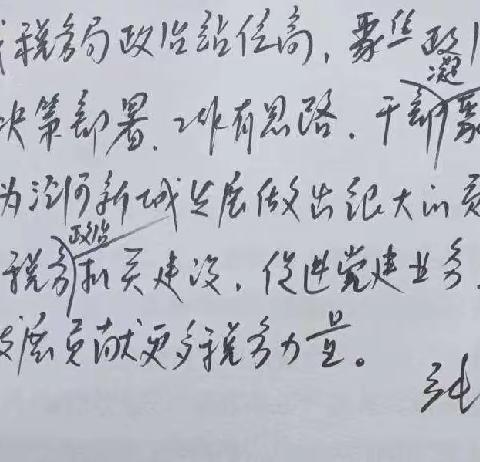 税务局政治站位高，聚焦政
决策部署，工作有思路，干部凝聚
为泾河新城发展做出很大的贡
税务政治机关建设，促进党建业务
发展贡献更多税务力量。
张